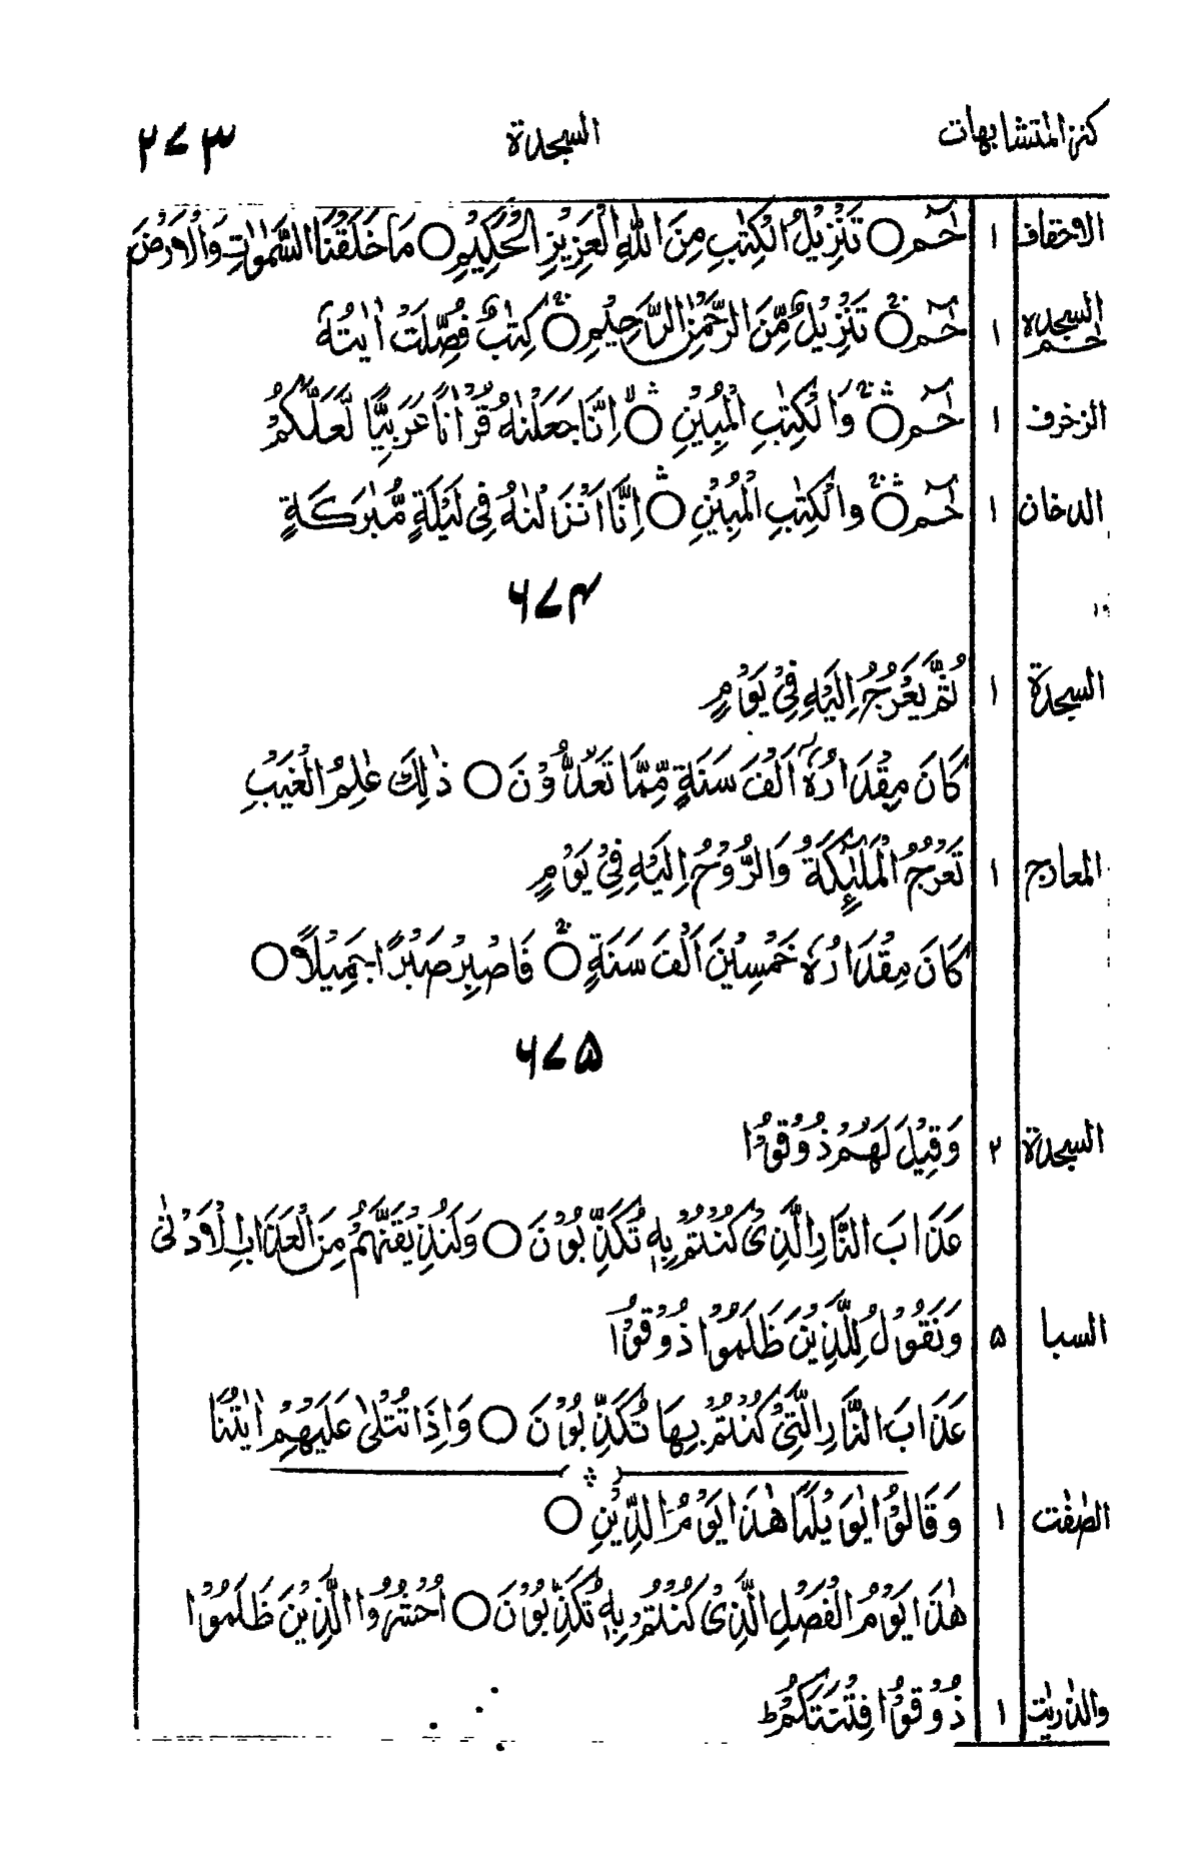 كنز المتشابهات السجدة ٢٧٣
الاحقاف ١ حٰمٓ ○ تَنْزِيْلُ الْكِتٰبِ مِنَ اللّٰهِ الْعَزِيْزِ الْحَكِيْمِ ○ مَا خَلَقْنَا السَّمٰوٰتِ وَالْاَرْضَ
حٰمٓ السجدة ١ حٰمٓ ○ تَنْزِيْلٌ مِّنَ الرَّحْمٰنِ الرَّحِيْمِ ○ كِتٰبٌ فُصِّلَتْ اٰيٰتُهٗ
الزخرف ١ حٰمٓ ○ وَالْكِتٰبِ الْمُبِيْنِ ○ اِنَّا جَعَلْنٰهُ قُرْاٰنًا عَرَبِيًّا لَّعَلَّكُمْ
الدخان ١ حٰمٓ ○ وَالْكِتٰبِ الْمُبِيْنِ ○ اِنَّا اَنْزَلْنٰهُ فِيْ لَيْلَةٍ مُّبٰرَكَةٍ
۶۷۴
السجدة ١ ثُمَّ يَعْرُجُ اِلَيْهِ فِيْ يَوْمٍ
كَانَ مِقْدَارُهٗٓ اَلْفَ سَنَةٍ مِّمَّا تَعُدُّوْنَ ○ ذٰلِكَ عٰلِمُ الْغَيْبِ
المعارج ١ تَعْرُجُ الْمَلٰٓئِكَةُ وَالرُّوْحُ اِلَيْهِ فِيْ يَوْمٍ
كَانَ مِقْدَارُهٗ خَمْسِيْنَ اَلْفَ سَنَةٍ ○ فَاصْبِرْ صَبْرًا جَمِيْلًا ○
۶۷۵
السجدة ٢ وَقِيْلَ لَهُمْ ذُوْقُوْا
عَذَابَ النَّارِ الَّذِيْ كُنْتُمْ بِهٖ تُكَذِّبُوْنَ ○ وَلَنُذِيْقَنَّهُمْ مِنَ الْعَذَابِ الْاَدْنٰى
السبا ۵ وَنَقُوْلُ لِلَّذِيْنَ ظَلَمُوْا ذُوْقُوْا
عَذَابَ النَّارِ الَّتِيْ كُنْتُمْ بِهَا تُكَذِّبُوْنَ ○ وَاِذَا تُتْلٰى عَلَيْهِمْ اٰيٰتُنَا
الصّٰفّٰت ١ وَقَالُوْا يٰوَيْلَنَا هٰذَا يَوْمُ الدِّيْنِ ○
هٰذَا يَوْمُ الْفَصْلِ الَّذِيْ كُنْتُمْ بِهٖ تُكَذِّبُوْنَ ○ اُحْشُرُوا الَّذِيْنَ ظَلَمُوْا
والذٰريٰت ١ ذُوْقُوْا فِتْنَتَكُمْ ط